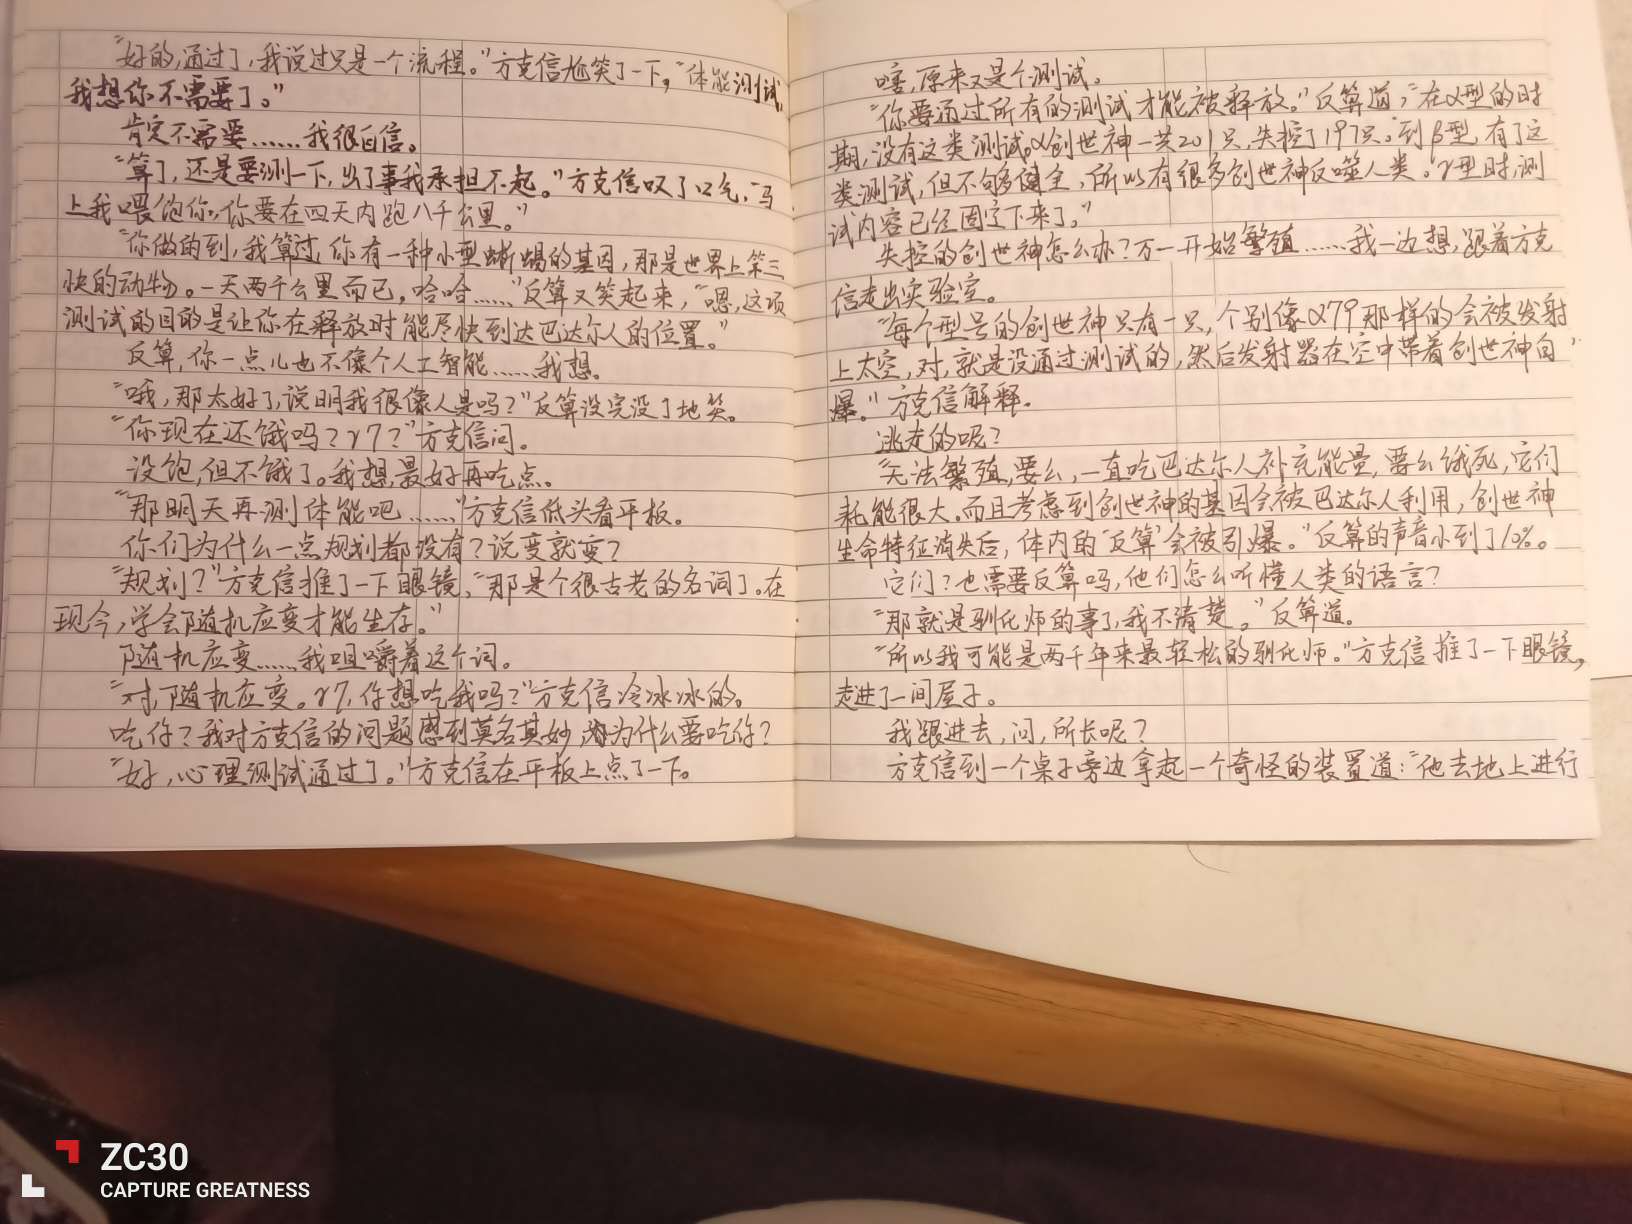 “好的,通过了,我说过只是一个流程。”方克信尬笑了一下,“体能测试,
我想你不需要了。”
肯定不需要……我很自信。
“算了,还是要测一下,出了事我承担不起。”方克信叹了口气,“马
上我喂饱你,你要在四天内跑八千公里。”
“你做的到,我算过,你有一种小型蜥蜴的基因,那是世界上第三
快的动物。一天两千公里而已,哈哈……”反算又笑起来,“嗯,这项
测试的目的是让你在释放时能尽快到达巴达尔人的位置。”
反算,你一点儿也不像个人工智能……我想。
“哦,那太好了,说明我很像人是吗?”反算没完没了地笑。
“你现在还饿吗?γ7?”方克信问。
没饱,但不饿了。我想,最好再吃点。
“那明天再测体能吧……”方克信低头看平板。
你们为什么一点规划都没有?说变就变?
“规划?”方克信推了一下眼镜,“那是个很古老的名词了。在
现今,学会随机应变才能生存。”
随机应变……我咀嚼着这个词。
“对,随机应变。γ7,你想吃我吗?”方克信冷冰冰的。
吃你?我对方克信的问题感到莫名其妙,为什么要吃你?
“好,心理测试通过了。”方克信在平板上点了一下。
嘻,原来又是个测试。
“你要通过所有的测试才能被释放。”反算道,“在α型的时
期,没有这类测试。α创世神一共201只,失控了197只。到β型,有了这
类测试,但不够健全,所以有很多创世神反噬人类。γ型时,测
试内容已经固定下来了。”
失控的创世神怎么办?万一开始繁殖……我一边想,跟着方克
信走出实验室。
“每个型号的创世神只有一只,个别像α79那样的会被发射
上太空,对,就是没通过测试的,然后发射器在空中带着创世神自
爆。”方克信解释。
逃走的呢?
“无法繁殖,要么,一直吃巴达尔人补充能量,要么饿死,它们
耗能很大。而且考虑到创世神的基因会被巴达尔人利用,创世神
生命特征消失后,体内的‘反算’会被引爆。”反算的声音小到了10%。
它们?也需要反算吗,他们怎么听懂人类的语言?
“那就是驯化师的事了,我不清楚。”反算道。
“所以我可能是两千年来最轻松的驯化师。”方克信推了一下眼镜,
走进了一间屋子。
我跟进去,问,所长呢?
方克信到一个桌子旁边拿起一个奇怪的装置道:“他去地上进行
ZC30
CAPTURE GREATNESS